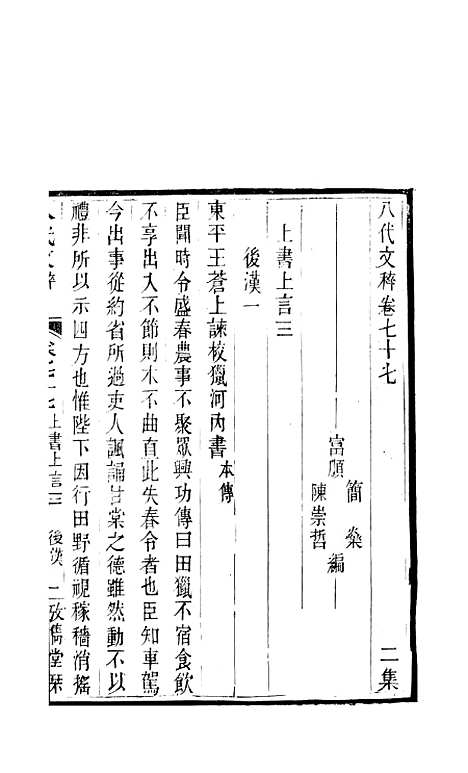 八代文粹卷七十七　二集
富順　簡燊
陳崇哲　編
上書上言三
後漢一
東平王蒼上諫校獵河內書 本傳
臣聞時令盛春農事不聚眾興功傳曰田獵不宿食飲
不享出入不節則木不曲直此失春令者也臣知車駕
今出事從約省所過吏人諷誦甘棠之德雖然動不以
禮非所以示四方也惟陛下因行田野循視稼穡消搖
八代文粹　卷七十七上書上言三　後漢　一　攷雋堂栞